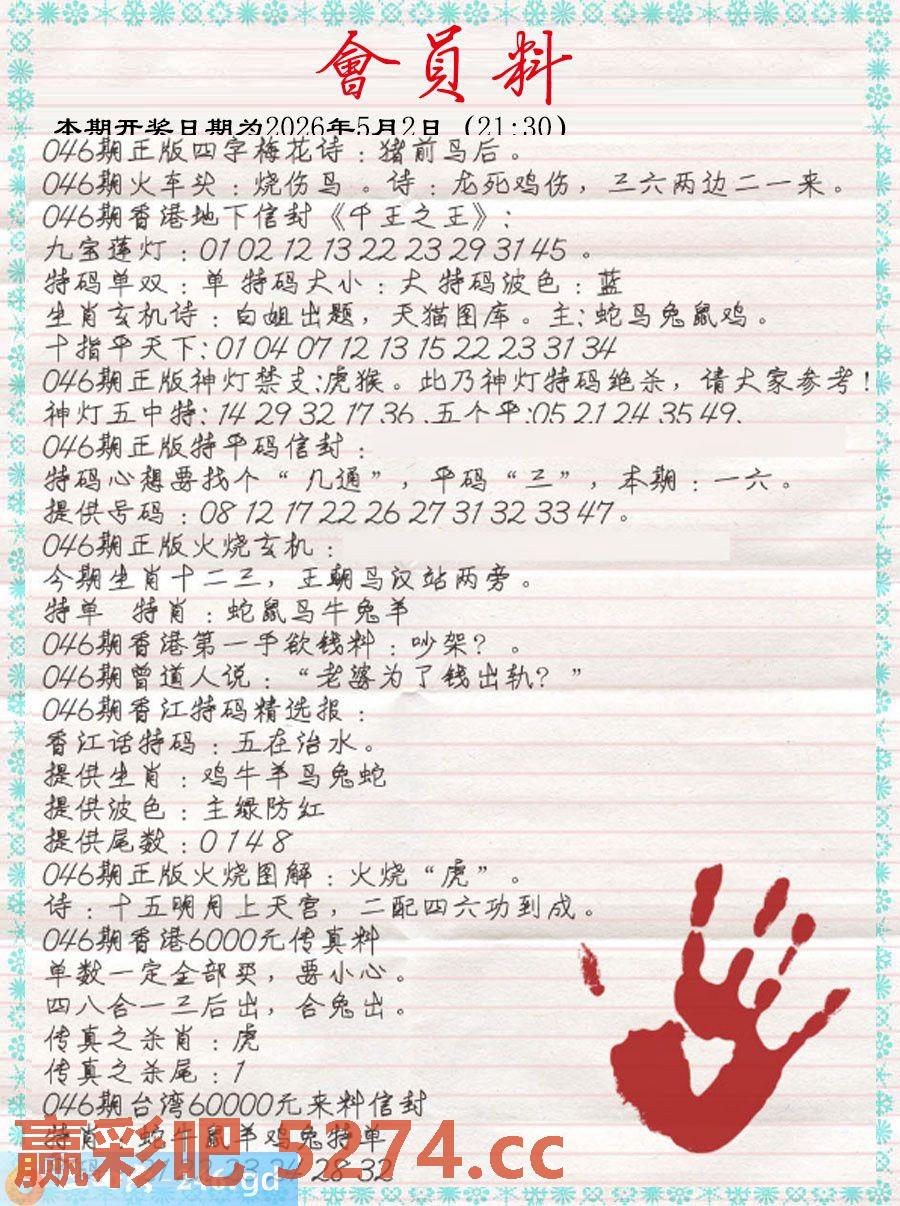 會員料
本期开奖日期为2026年5月2日（21:30）
046期正版四字梅花诗：猪前鸟后。
046期火车头：烧伤鸟。诗：龙死鸡伤，三六两边二一来。
046期香港地下信封《千王之王》：
九宝莲灯：01 02 12 13 22 23 29 31 45 。
特码单双：单 特码大小：大 特码波色：蓝
生肖玄机诗：白姐出题，天猫图库。主：蛇鸟兔鼠鸡。
十指平天下：01 04 07 12 13 15 22 23 31 34
046期正版神灯禁支:虎猴。此乃神灯特码绝杀，请大家参考！
神灯五中特：14 29 32 17 36 .五个平:05 21 24 35 49.
046期正版特平码信封：
特码心想要找个“ 几通”，平码“三”，本期：一六。
提供号码：08 12 17 22 26 27 31 32 33 47。
046期正版火烧玄机：
今期生肖十二三，王朝鸟汉站两旁。
特单 特肖：蛇鼠鸟牛兔羊
046期香港第一手欲钱料：吵架？。
046期曾道人说：“老婆为了钱出轨？”
046期香江特码精选报：
香江话特码：五在治水。
提供生肖：鸡牛羊鸟兔蛇
提供波色：主绿防红
提供尾数：0 1 4 8
046期正版火烧图解：火烧“虎”。
诗：十五明月上天宫，二配四六功到成。
046期香港6000元传真料
单数一定全部买，要小心。
四八合一三后出，合兔出。
传真之杀肖：虎
传真之杀尾：1
046期台湾60000元来料信封
特肖：蛇牛鼠羊鸡兔特单
赢彩吧 5274.cc
28 32